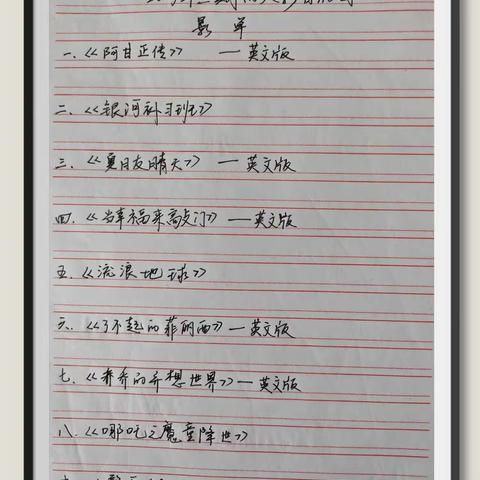 影单
一、《阿甘正传》 — 英文版
二、《银河补习班》
三、《夏日友晴天》 — 英文版
四、《当幸福来敲门》 — 英文版
五、《流浪地球》
六、《了不起的菲丽西》 — 英文版
七、《乔乔的异想世界》 — 英文版
八、《哪吒之魔童降世》